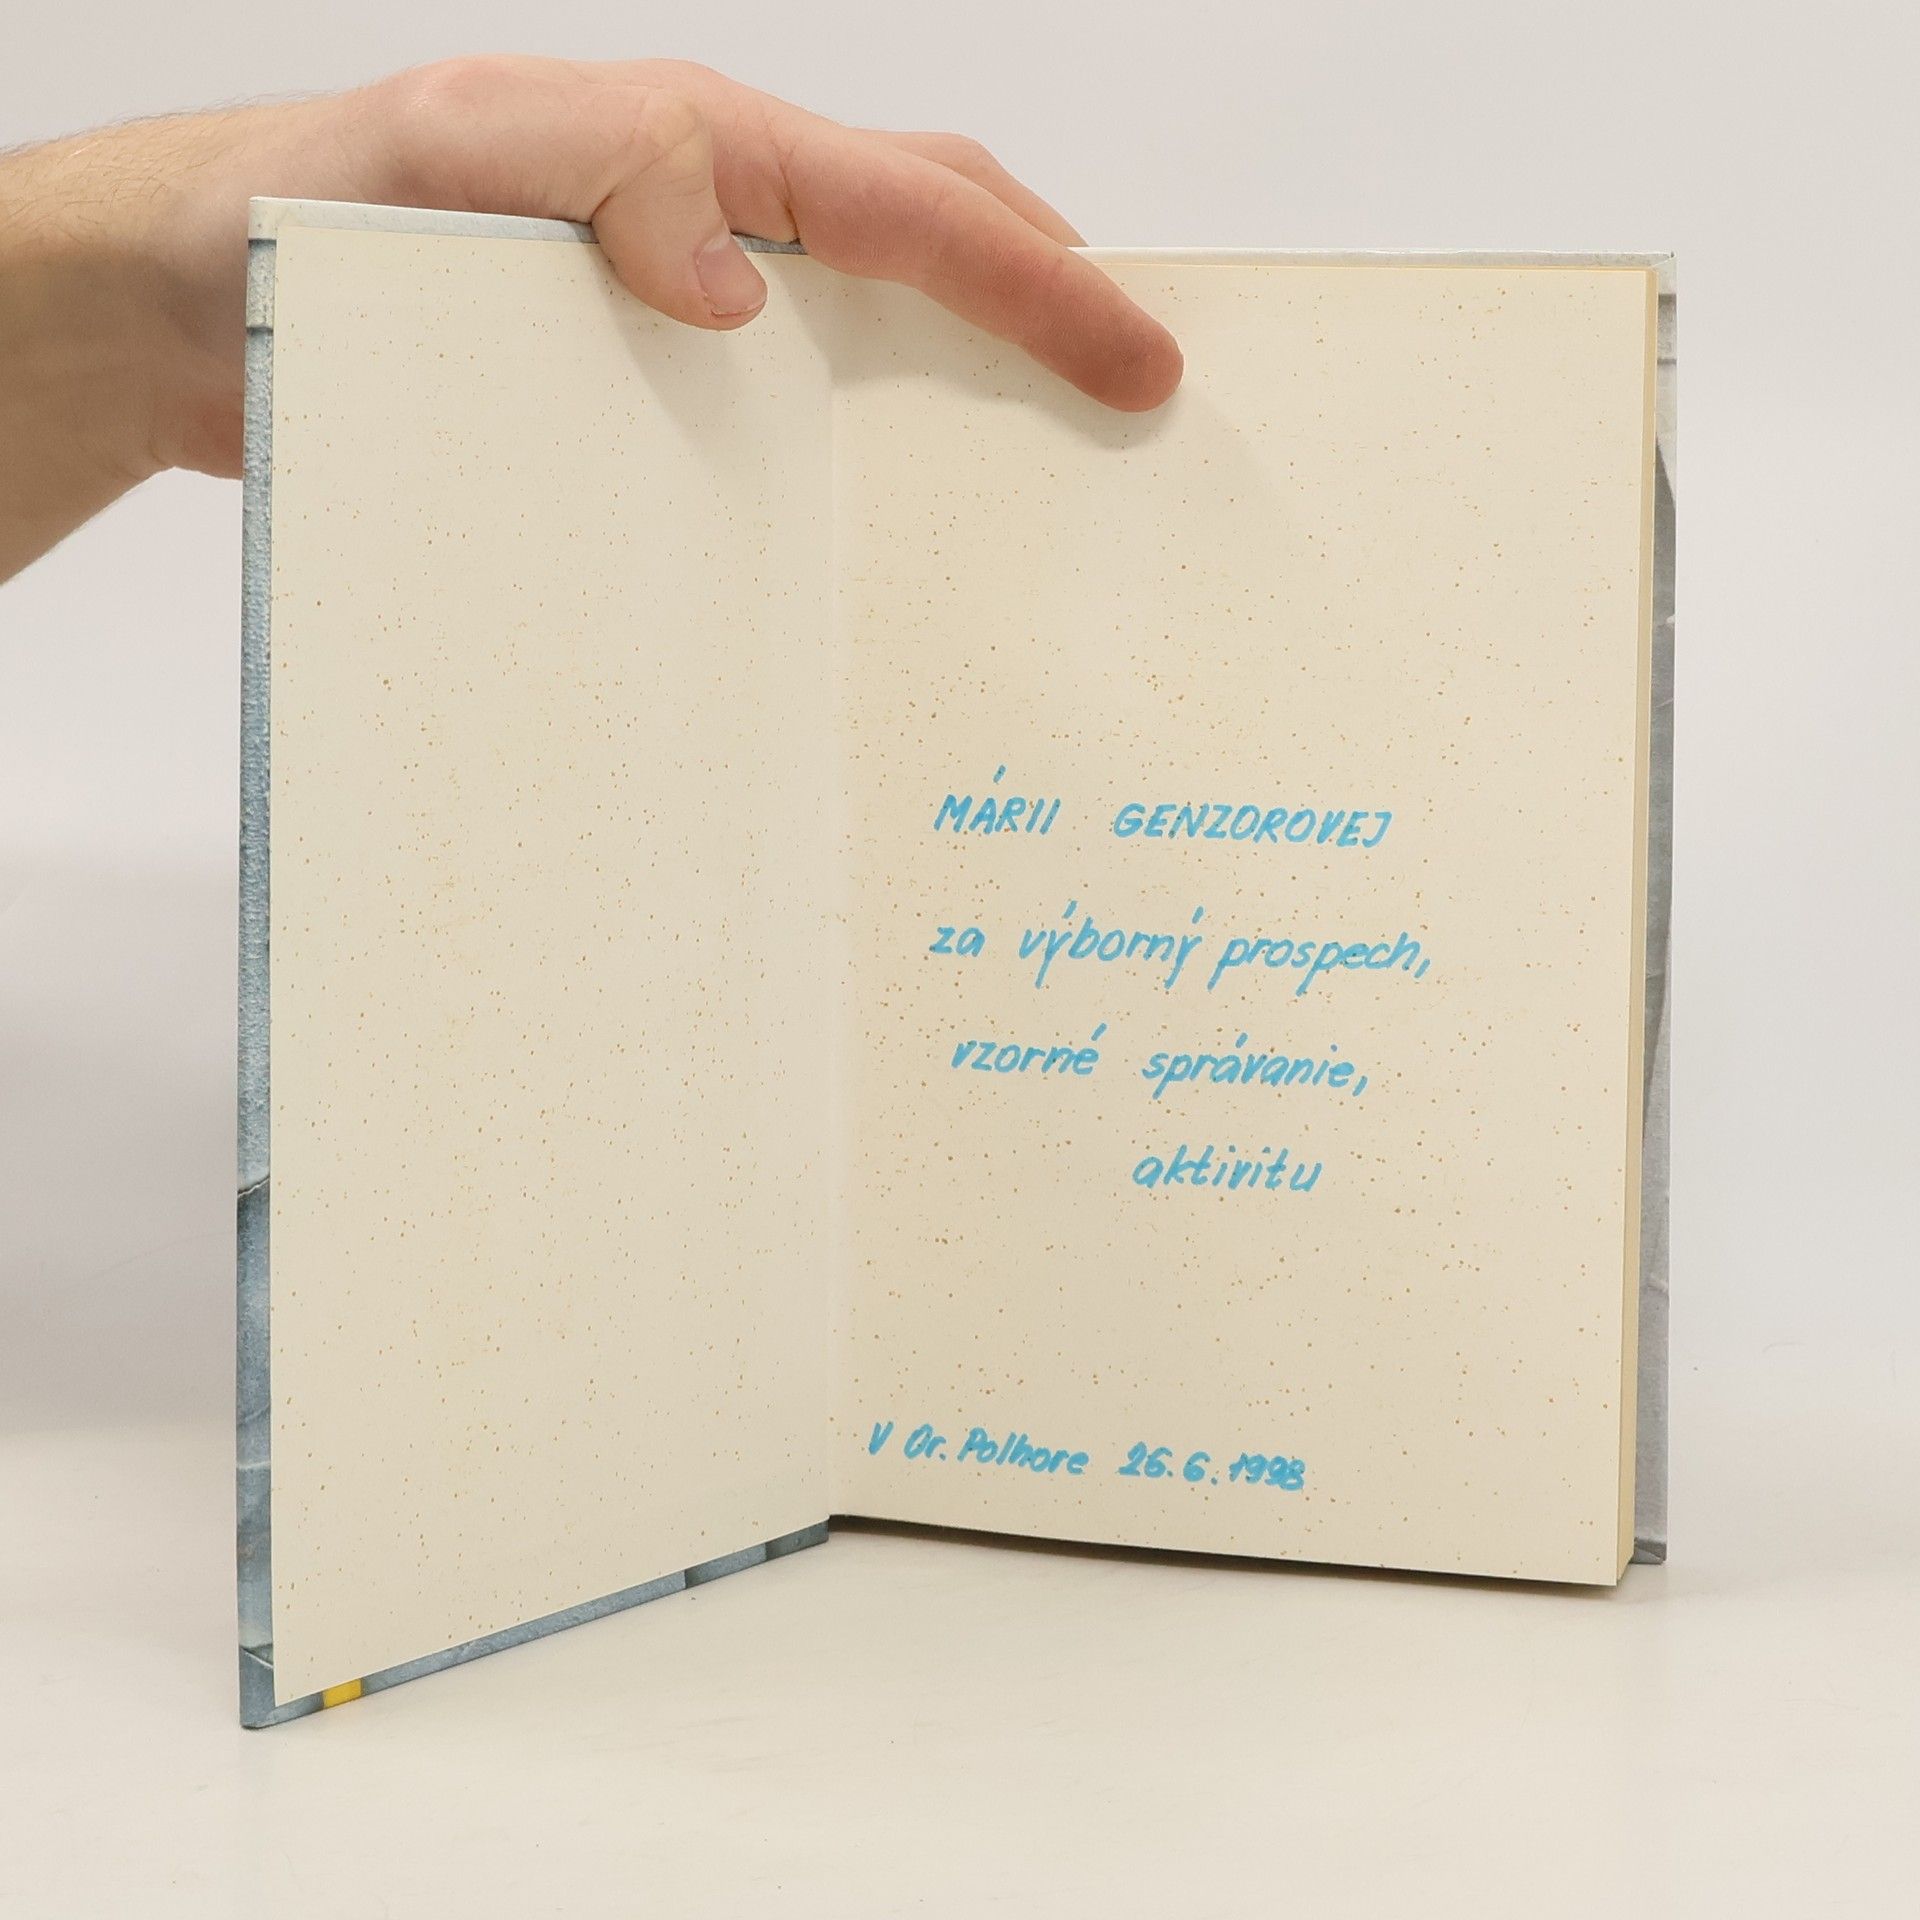 MÁRII GENZOROVEJ
za výborný prospech,
vzorné správanie,
aktivitu
V Or. Polhore 26.6.1998